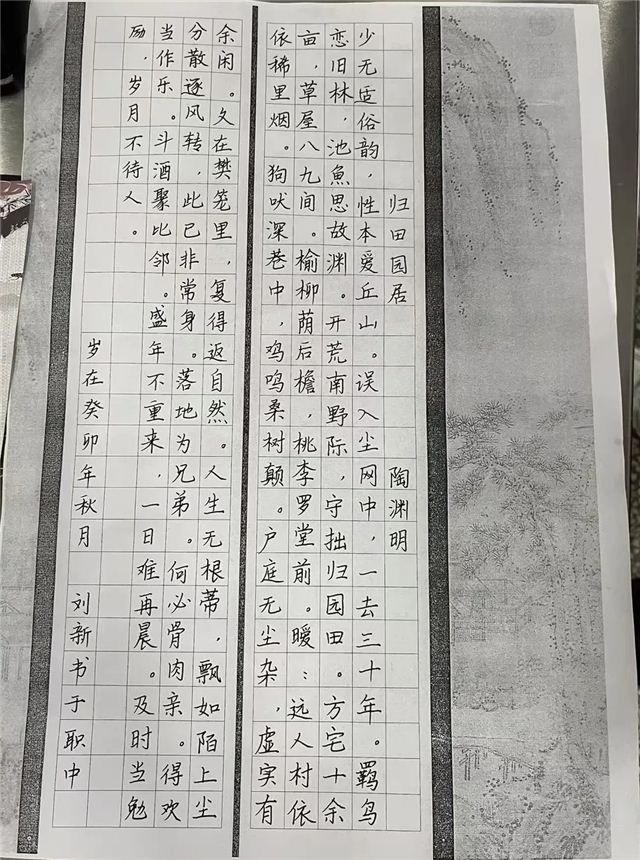 归田园居 陶渊明
少无适俗韵，性本爱丘山。误入尘网中，一去三十年。羁鸟
恋旧林，池魚思故渊。开荒南野际，守拙归园田。方宅十余
亩，草屋八九间。榆柳荫后檐，桃李罗堂前。暧：远人村依
依稀里烟。狗吠深巷中，鸡鸣桑树颠。户庭无尘杂，虚实有
余闲。久在樊笼里，复得返自然。人生无根蒂，飘如陌上尘
分散逐风转，此已非常身。落地为兄弟。何必骨肉亲。得欢
当作乐。斗酒聚比邻。盛年不重来，一日难再晨。及时当勉
励，岁月不待人。
岁在癸卯年秋月 刘新书于职中